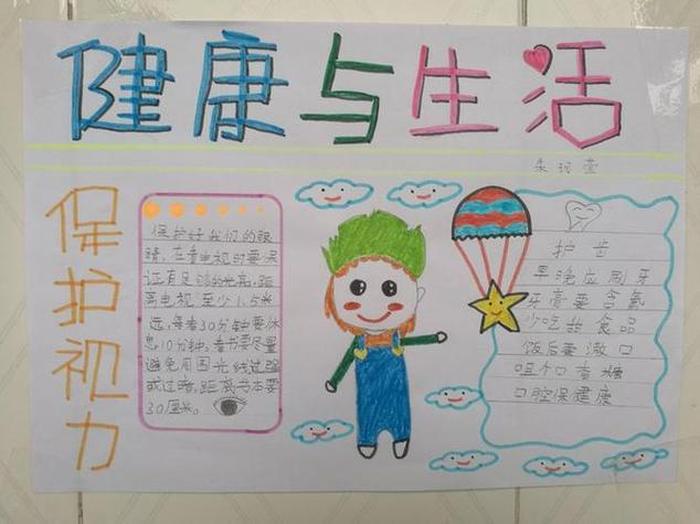 健康与生活
保护视力
保护好我们的眼
睛,在看电视时要保
证有足够的光亮,距
离电视至少1.5米
远,每看30分钟要休
息10分钟。看书要尽量
避免周围光线过强
或过暗,距离书本要
30厘米。
护齿
早晚应刷牙
牙膏要含氟
少吃甜食品
饭后要漱口
咀个口香糖
口腔保健康